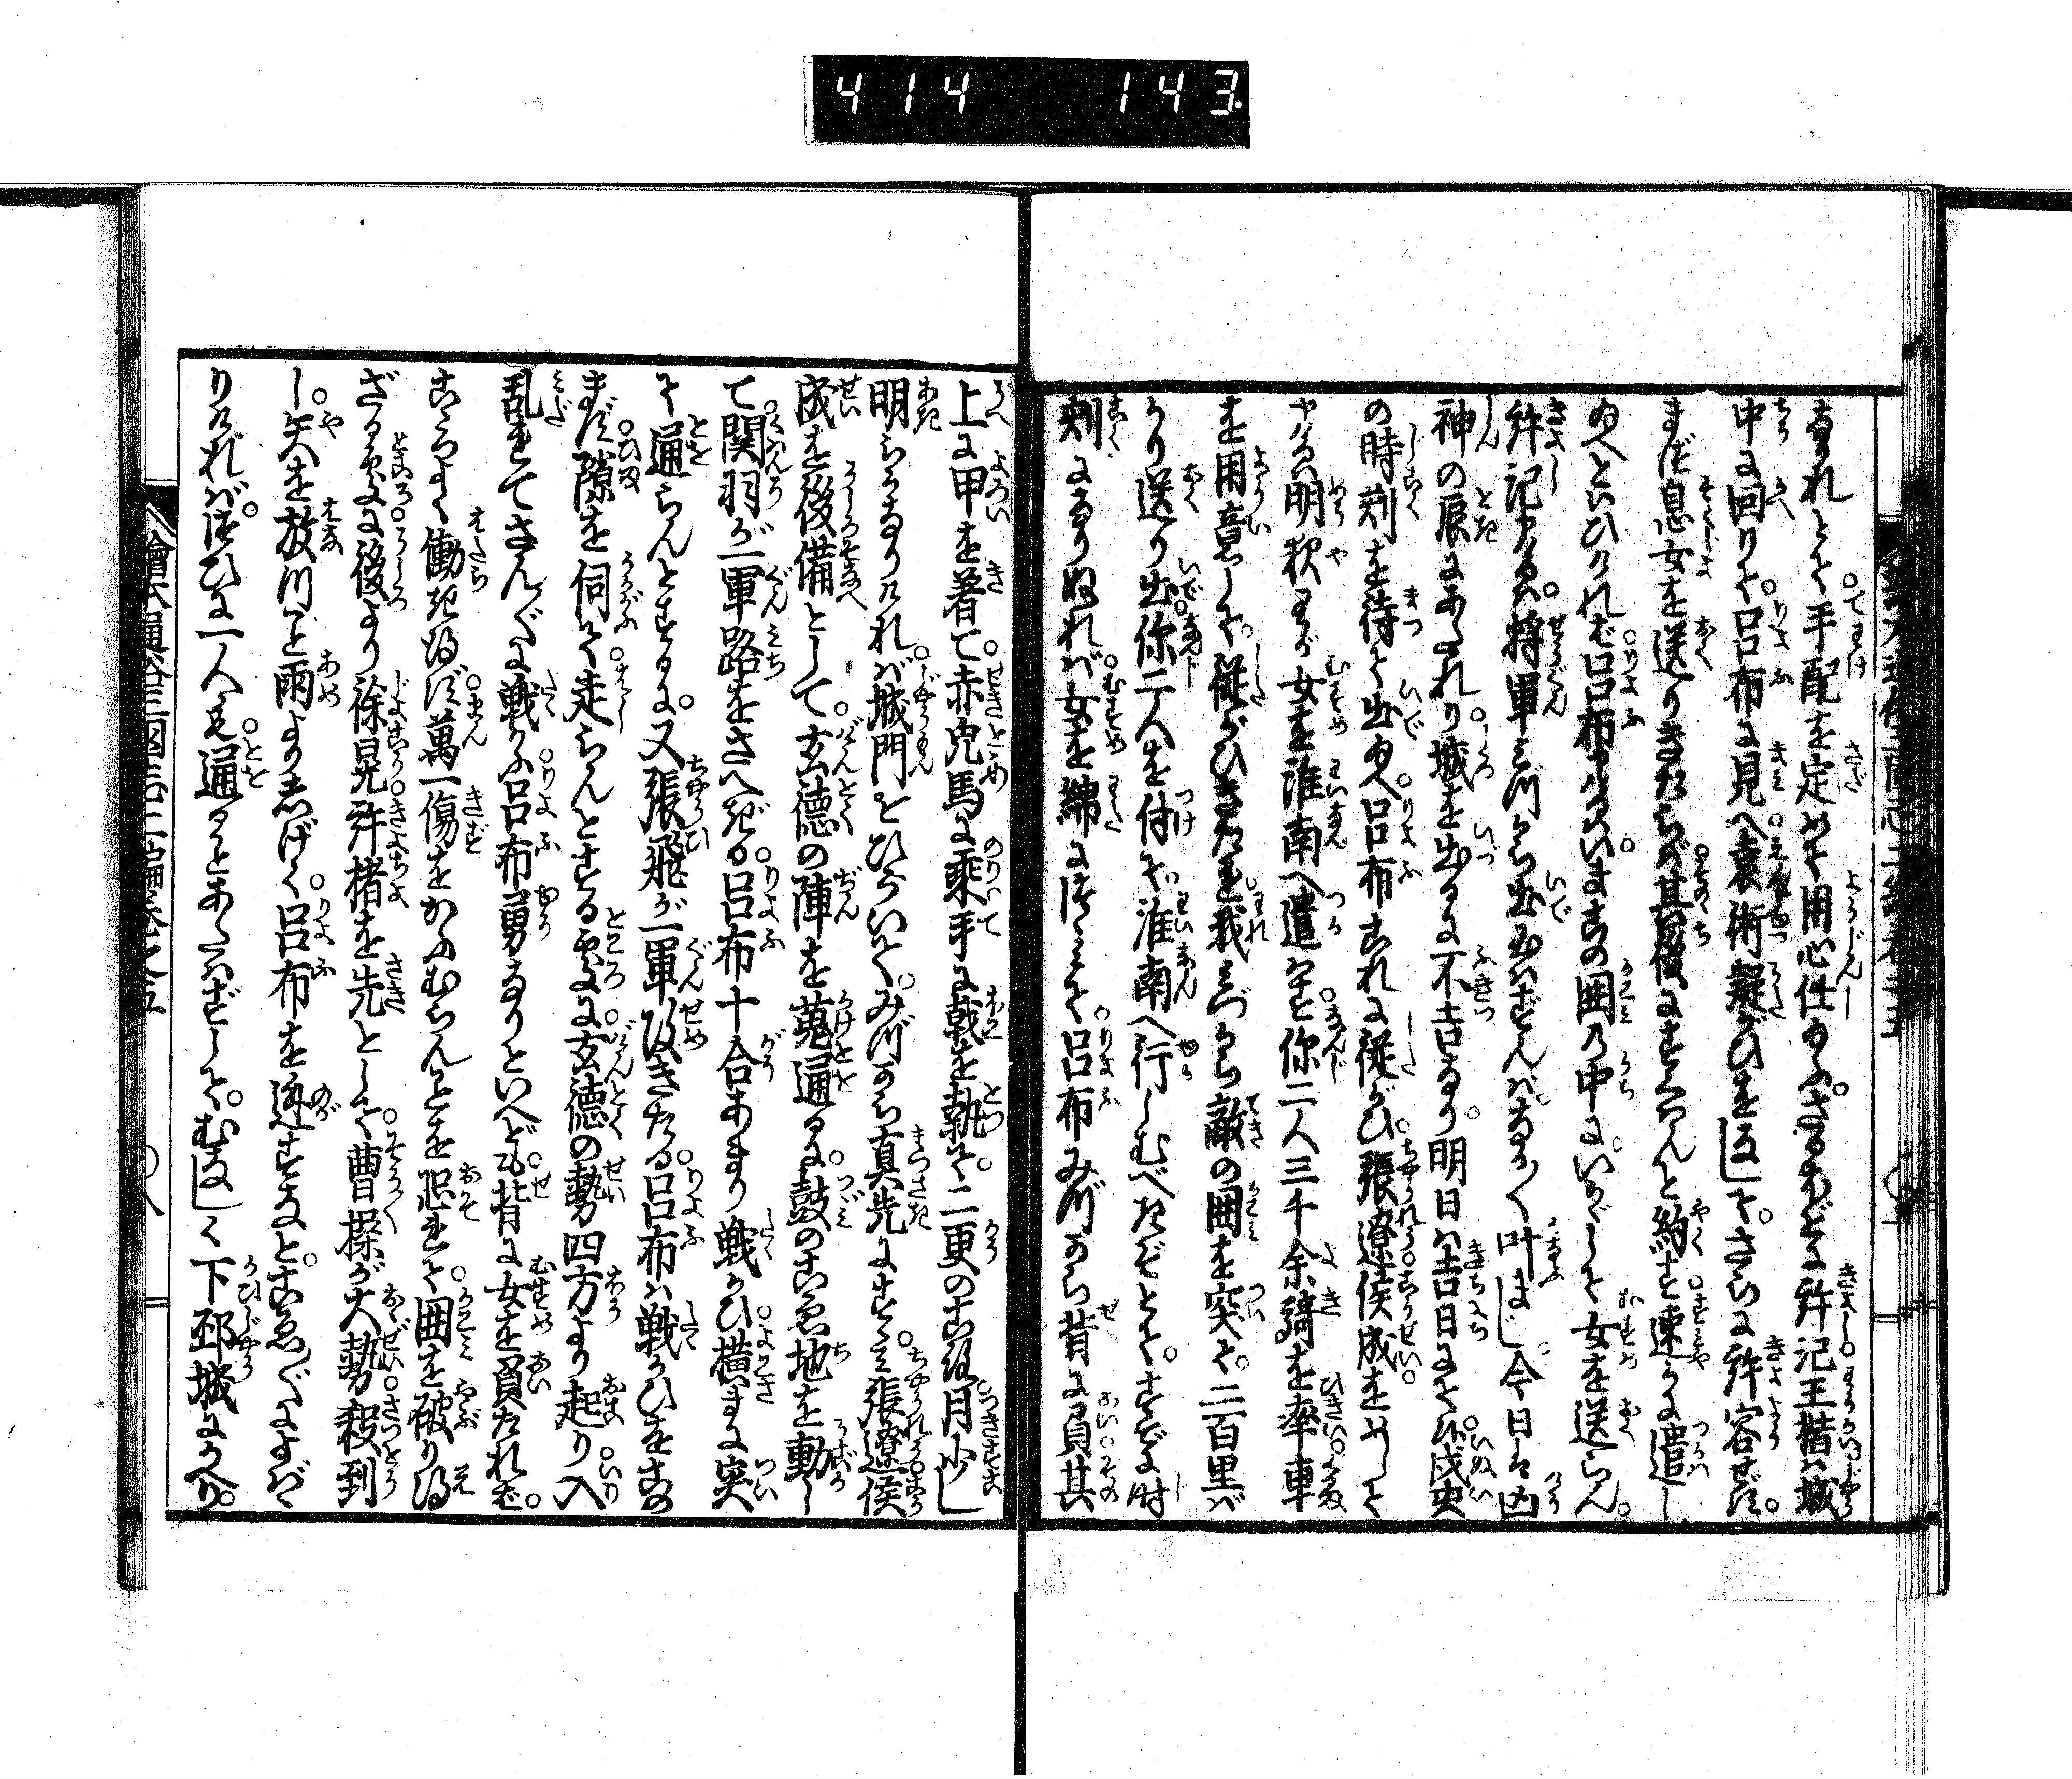 414 143
なかれとて手配を定めて用心仕給ふさるほどに許汜王楷ハ城
中に回りて呂布に見へ袁術疑がひをなしてさらに許容せず
まづ息女を送りきたらば其後にすくはんと約す速かに遣し
給へといひければ呂布申けるハいまこの囲の中にいかゞして女を送らん
許汜申けるハ将軍みづから出玉ハずんばなか〱叶まじ今日は凶
神の辰にあたれり城を出るに不吉なり明日ハ吉日にて戌亥
の時刻を待て出給へ呂布これに従がひ張遼侯成をめして
申けるハ明夜わが女を淮南へ遣ハす你二人三千余騎を率車
を用意して従がひきたれ我みづから敵の囲を突て二百里ば
かり送り出你二人を付て淮南へ行しむべきぞとてすでに時
刻になりぬれバ女を綿につゝみて呂布みづから背に負其
上に甲を着て赤兎馬に乗手に戟を執て二更のころ月少し
明らかなりければ城門をひらいてみづから真先にすゝみ張遼侯
成を後備として玄徳の陣を蒐通るに鼓のこゑ地を動し
て関羽が一軍路をさへぎる呂布十合あまり戦かひ横まに突
て通らんとするに又張飛が一軍攻きたる呂布ハ戦かひをこの
まず隙を伺て走らんとする処に玄徳の勢四方より起り入
乱れてさんざんに戦かふ呂布勇なりといへども背に女を負たれば
こゝろよく働き得ず萬一傷をかふむらんことを恐れて囲を破り得
ざる処に後より徐晃許褚を先として曹操が大勢殺到
し矢を放つこと雨よりしげく呂布を遁すなとこゑ〲によばゝ
りければつひに一人も通ることあたハずしてむなしく下邳城にかへり
繪本通俗三國志二編卷之五